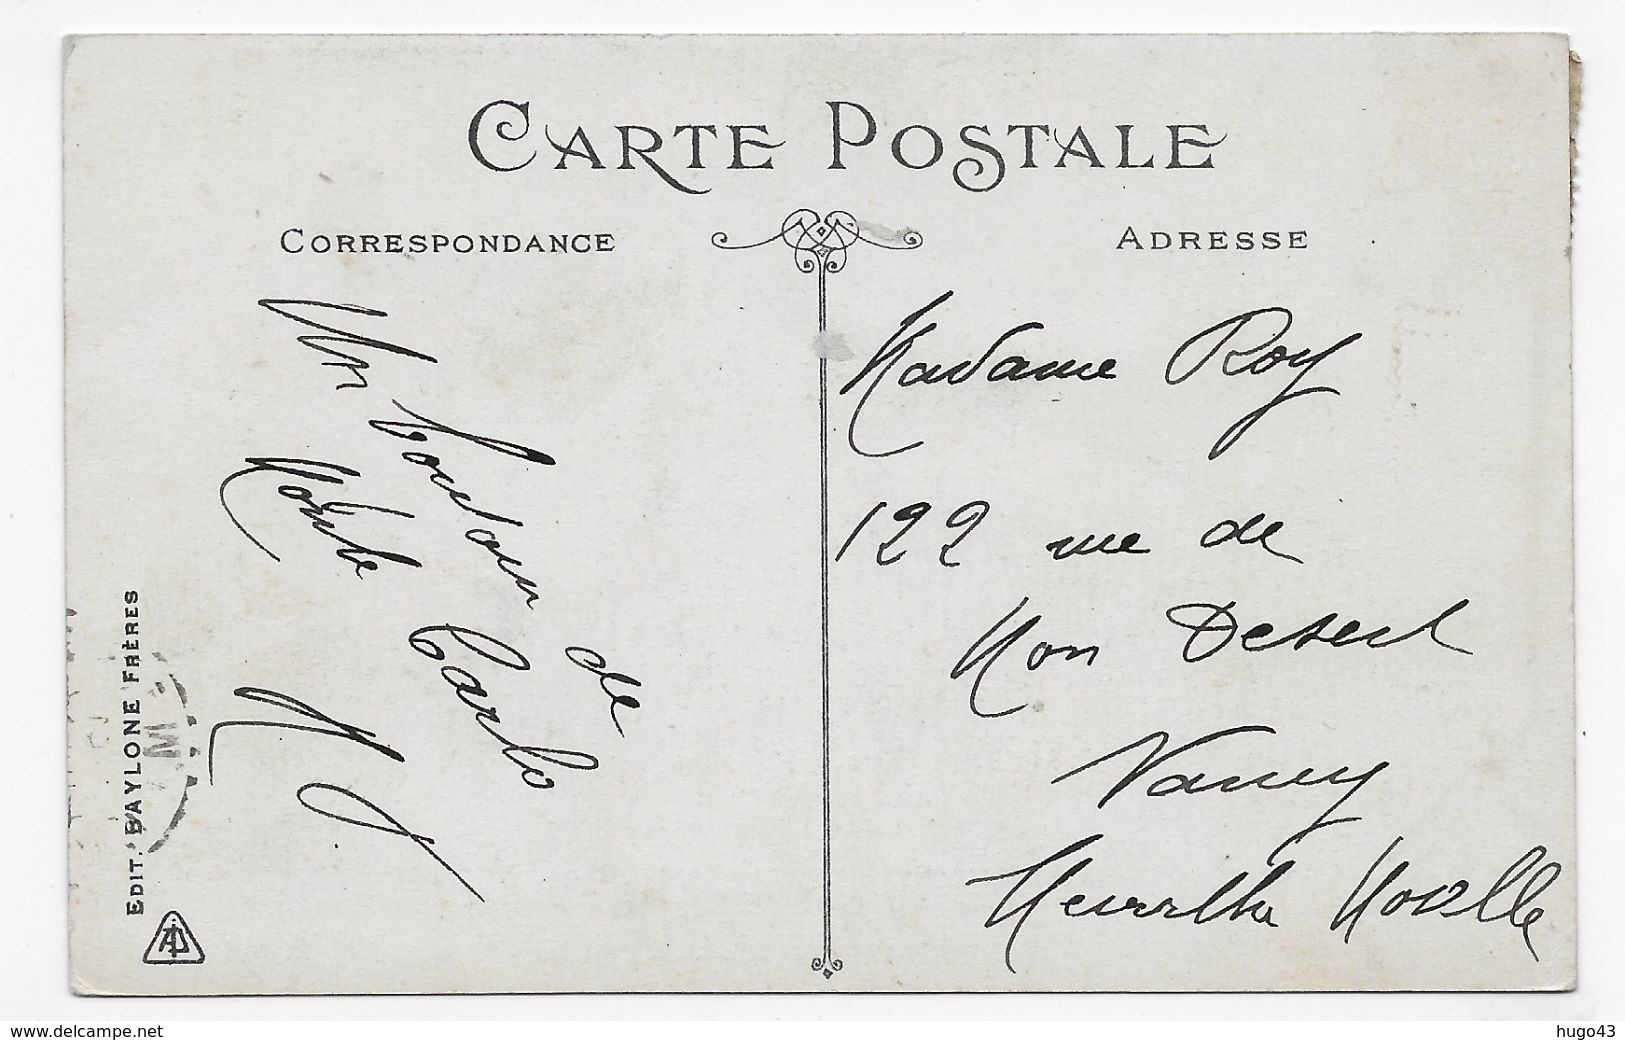 CARTE POSTALE
CORRESPONDANCE
ADRESSE
Un bonjour de
Monte Carlo
Madame Roy
122 rue de
Mon Desert
Nancy
Meurthe Moselle
EDIT. BAYLONE FRÈRES
www.delcampe.net
hugo43